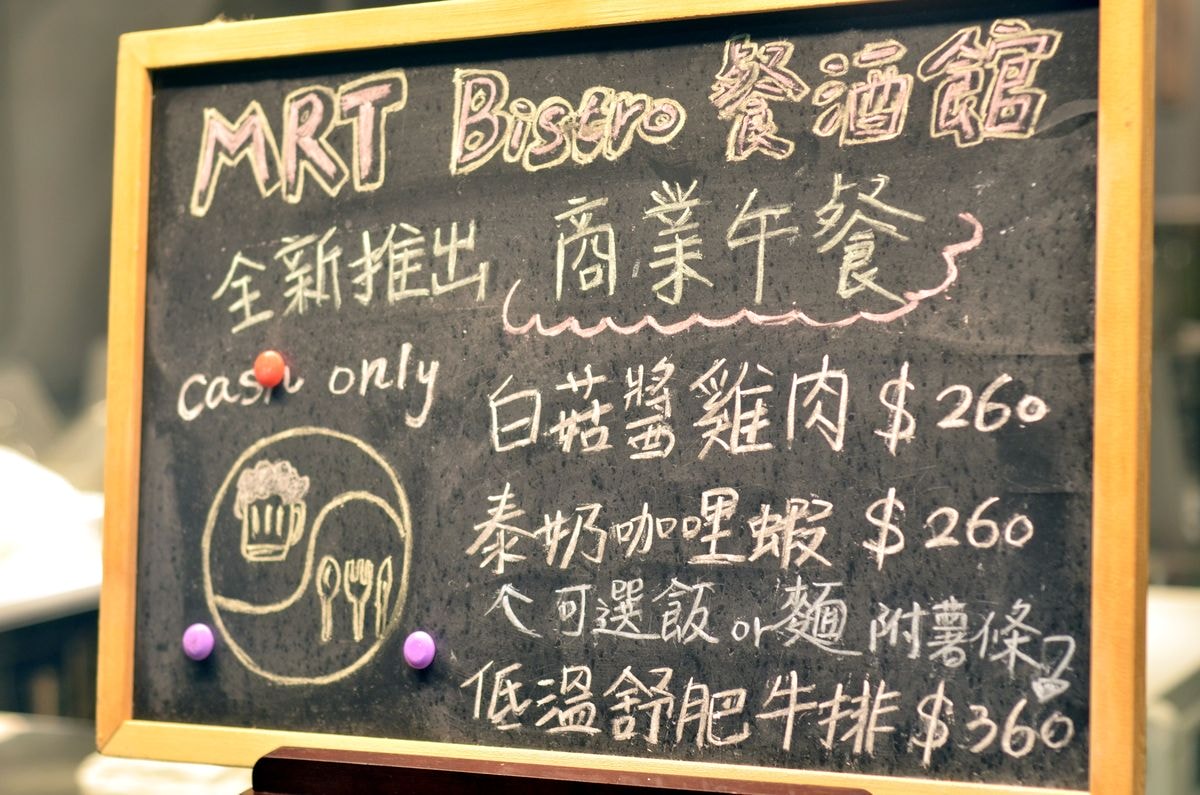 MRT Bistro 餐酒館
全新推出 商業午餐
cash only
白菇醬雞肉 $260
泰奶咖哩蝦 $260
可選飯 or 麵 附薯條
低溫舒肥牛排 $360